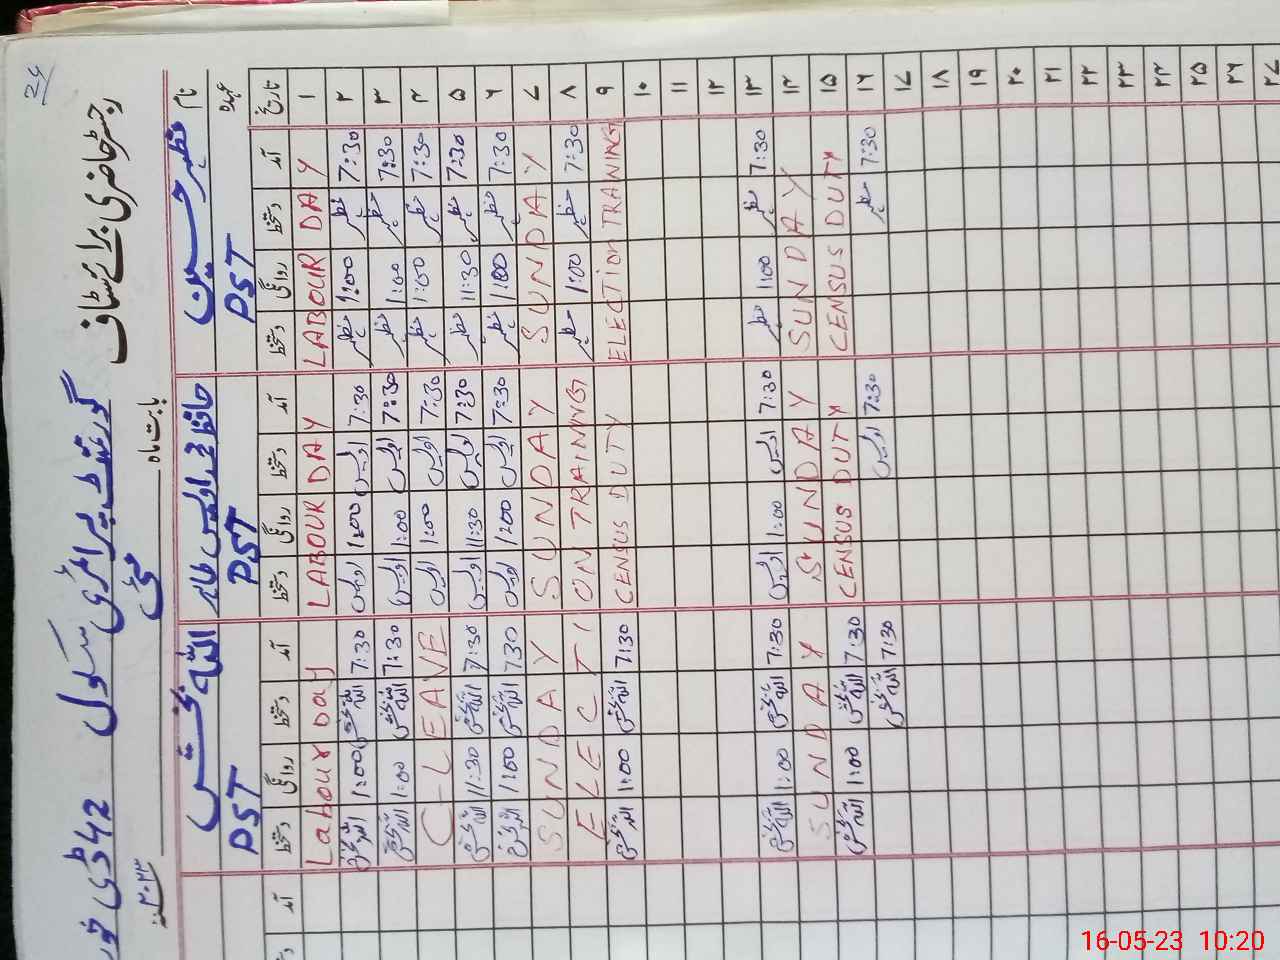 24
رجسٹر حاضری برائے سٹاف گورنمنٹ پرائمری سکول 42 ڈی
بابت ماہ مئی ۲۰۲۳
نام مظہر حسین حافظ محمد اویس طاہر اللہ بخش
عہدہ PST PST PST
تاریخ آمد دستخط روانگی دستخط آمد دستخط روانگی دستخط آمد دستخط روانگی دستخط آمد
۱ LABOUR DAY LABOUR DAY Labour Day
۲ 7:30 مظہر 1:00 مظہر 7:30 اویس 1:00 اویس 7:30 اللہ بخش 1:00 اللہ بخش
۳ 7:30 مظہر 1:00 مظہر 7:30 اویس 1:00 اویس 7:30 اللہ بخش 1:00 اللہ بخش
۴ 7:30 مظہر 1:00 مظہر 7:30 اویس 1:00 اویس C-LEAVE
۵ 7:30 مظہر 11:30 مظہر 7:30 اویس 11:30 اویس 7:30 اللہ بخش 11:30 اللہ بخش
۶ 7:30 مظہر 1:00 مظہر 7:30 اویس 1:00 اویس 7:30 اللہ بخش 1:00 اللہ بخش
۷ SUNDAY SUNDAY SUNDAY
۸ 7:30 مظہر 1:00 مظہر ON TRAINING ELECTI
۹ ELECTION TRANING CENSUS DUTY 7:30 اللہ بخش 1:00 اللہ بخش
۱۰
۱۱
۱۲
۱۳ 7:30 مظہر 1:00 مظہر 7:30 اویس 1:00 اویس 7:30 اللہ بخش 1:00 اللہ بخش
۱۴ SUNDAY SUNDAY SUNDAY
۱۵ CENSUS DUTY CENSUS DUTY 7:30 اللہ بخش 1:00 اللہ بخش
۱۶ 7:30 مظہر 7:30 اویس 7:30 اللہ بخش
۱۷
۱۸
۱۹
۲۰
۲۱
۲۲
۲۳
۲۴
۲۵
۲۶
۲۷
16-05-23 10:20